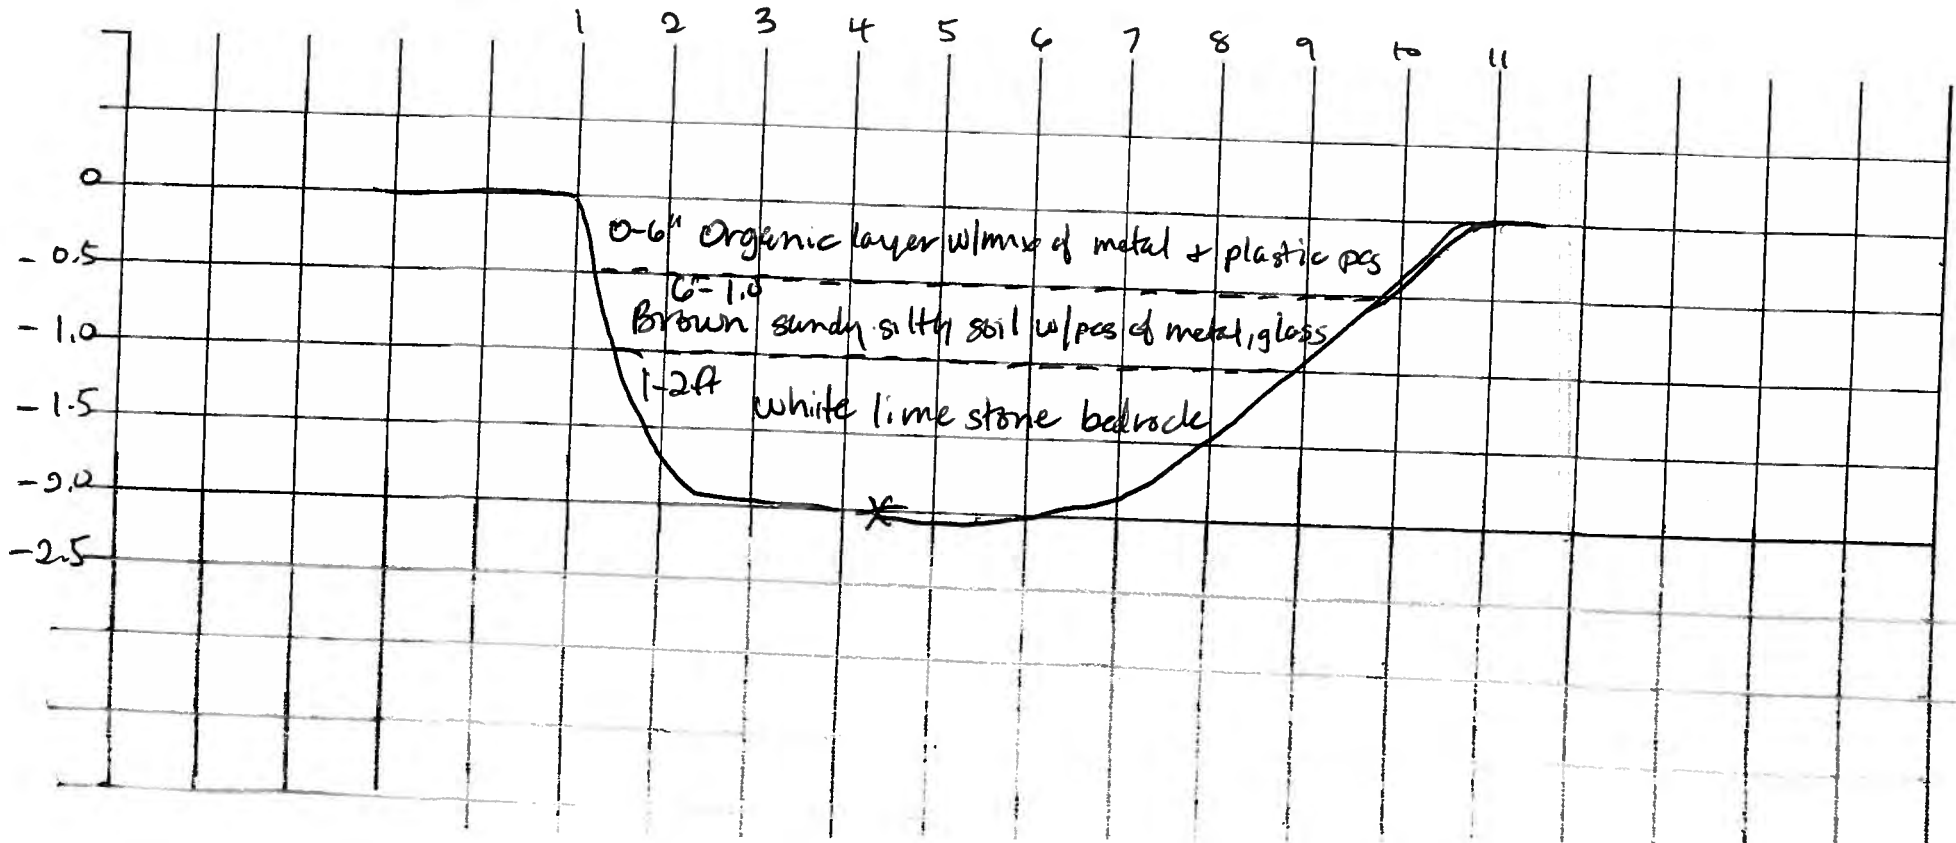 1 2 3 4 5 6 7 8 9 10 11
0
0-6" Organic layer w/mix of metal + plastic pcs
-0.5
6"-1.0
Brown sandy silty soil w/pcs of metal, glass
-1.0
1-2ft
-1.5
white lime stone bedrock
-2.0
X
-2.5